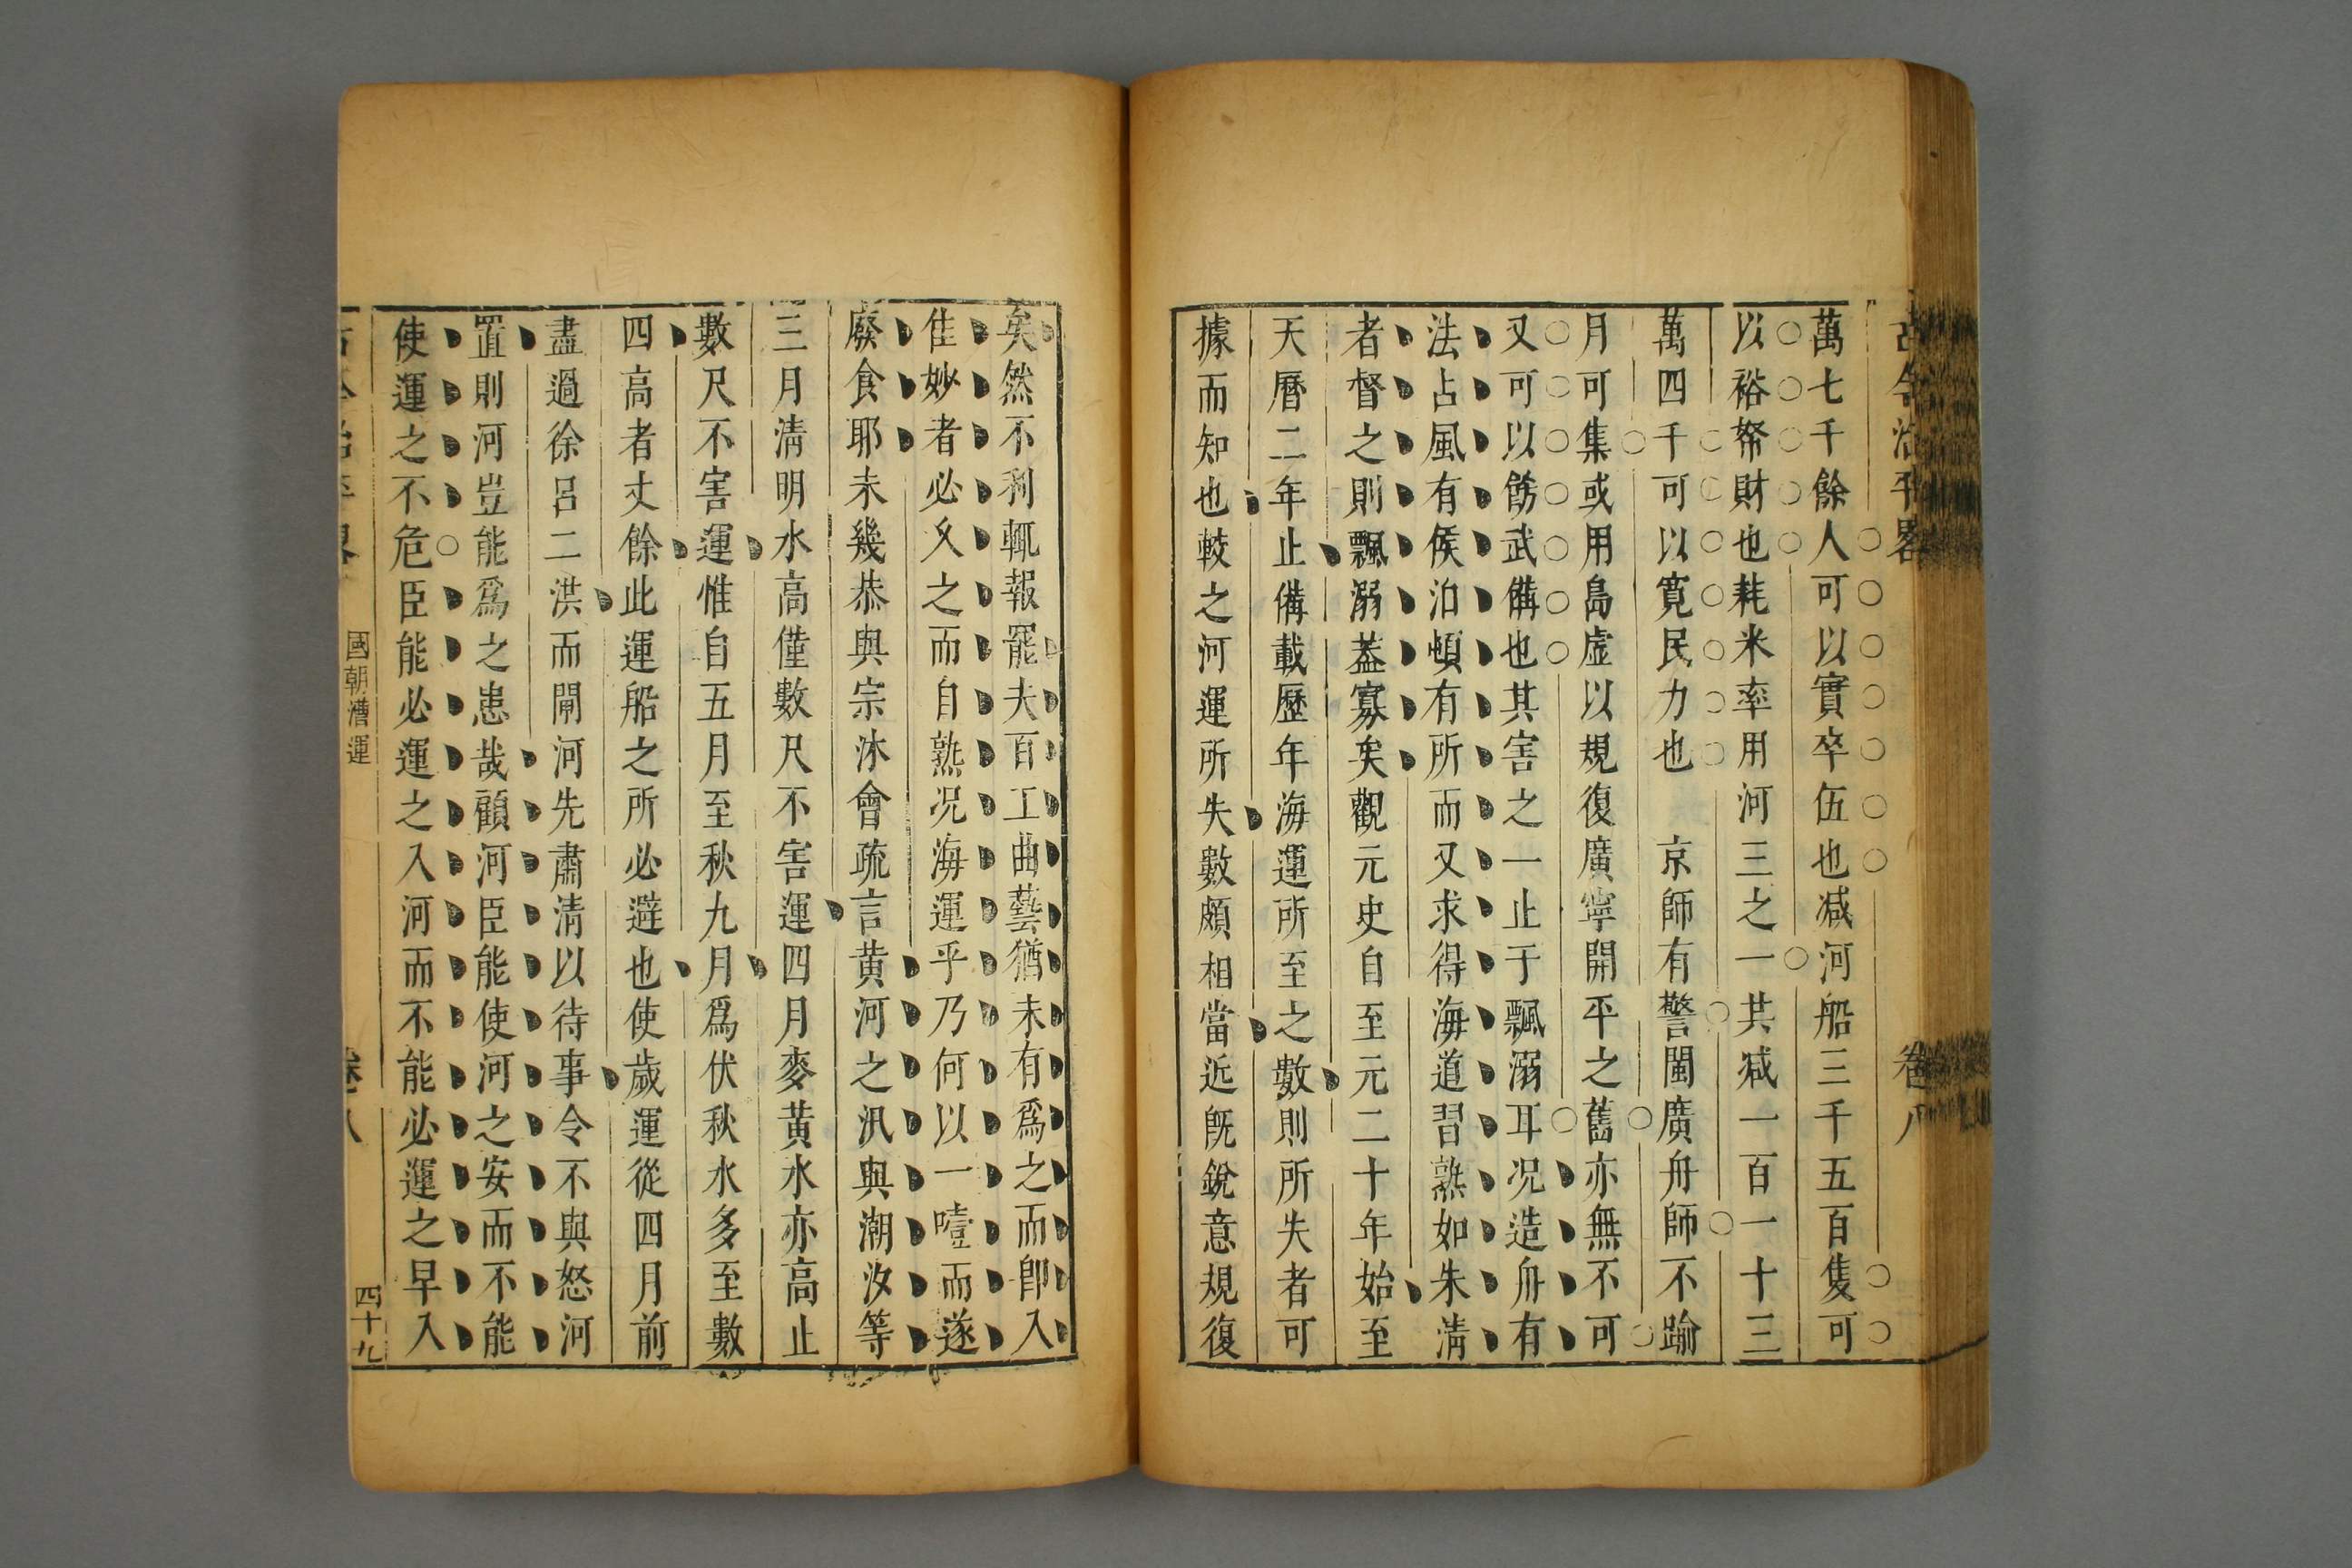 古今治平畧 卷八
萬七千餘人可以實卒伍也减河船三千五百隻可
以裕帑財也耗米率用河三之一共减一百一十三
萬四千可以寬民力也 京師有警閩廣舟師不踰
月可集或用島虛以規復廣寧開平之舊亦無不可
又可以飭武備也其害之一止于飄溺耳况造舟有
法占風有侯泊頓有所而又求得海道習熟如朱淸
者督之則飄溺葢寡矣觀元史自至元二十年始至
天曆二年止備載歷年海運所至之數則所失者可
據而知也較之河運所失數頗相當近旣銳意規復
矣然不利輒報罷夫百工曲藝猶未有爲之而卽入
佳妙者必久之而自熟况海運乎乃何以一噎而遂
廢食耶未幾恭與宗沐會疏言黃河之汛與潮汝等
三月淸明水高僅數尺不害運四月麥黃水亦高止
數尺不害運惟自五月至秋九月爲伏秋水多至數
四高者丈餘此運船之所必避也使歲運從四月前
盡過徐呂二洪而閘河先肅淸以待事令不與怒河
置則河豈能爲之患哉顧河臣能使河之安而不能
使運之不危臣能必運之入河而不能必運之早入
國朝漕運 四十九